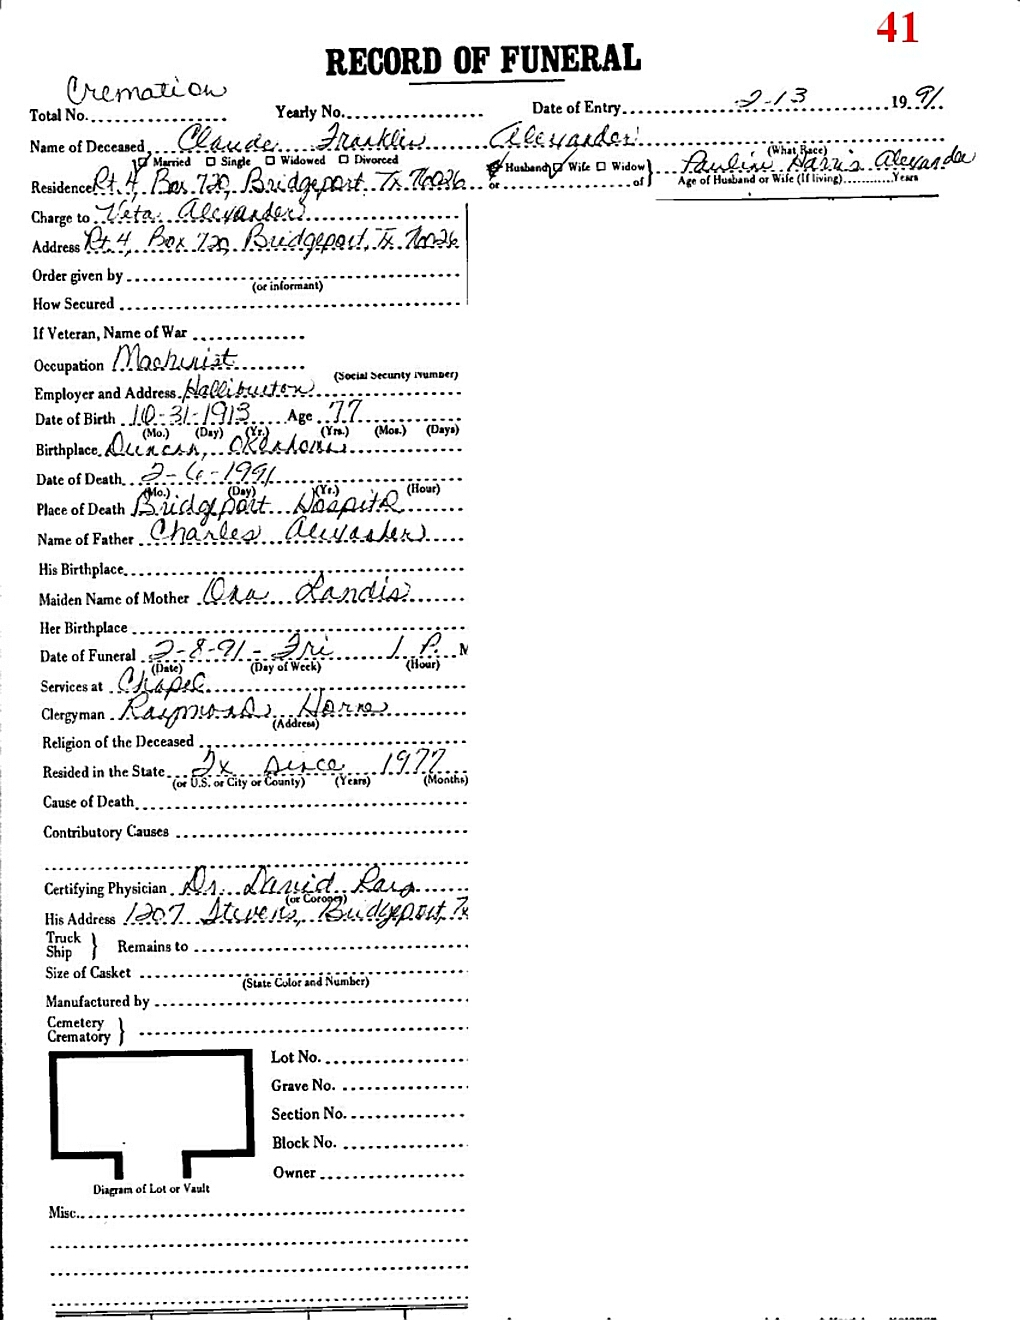 41
RECORD OF FUNERAL
Cremation
Total No. Yearly No. Date of Entry 2-13 1991
Name of Deceased Claude Franklin Alexander (What Race)
Married Single Widowed Divorced Husband Wife Widow Pauline Harris Alexander
Residence Rt. 4, Box 720, Bridgeport, Tx 76026 or of Age of Husband or Wife (If living) Years
Charge to Veta Alexander
Address Rt 4, Box 720, Bridgeport, Tx 76026
Order given by
(or informant)
How Secured
If Veteran, Name of War
Occupation Machinist
(Social Security Number)
Employer and Address Halliburton
Date of Birth 10-31-1913 Age 77
(Mo.) (Day) (Yr.) (Yrs.) (Mos.) (Days)
Birthplace Duncan, Oklahoma
Date of Death 2-6-1991
(Mo.) (Day) (Yr.) (Hour)
Place of Death Bridgeport Hospital
Name of Father Charles Alexander
His Birthplace
Maiden Name of Mother Ora Landis
Her Birthplace
Date of Funeral 2-8-91 - Fri 1 P. M
(Date) (Day of Week) (Hour)
Services at Chapel
Clergyman Raymond
(Address)
Religion of the Deceased
Resided in the State Tx since 1977
(or U.S. or City or County) (Years) (Months)
Cause of Death
Contributory Causes
Certifying Physician Dr. David
(or Coroner)
His Address 1207 Stevens, Bridgeport, Tx
Truck
Ship } Remains to
Size of Casket
(State Color and Number)
Manufactured by
Cemetery
Crematory }
Lot No.
Grave No.
Section No.
Block No.
Owner
Diagram of Lot or Vault
Misc.